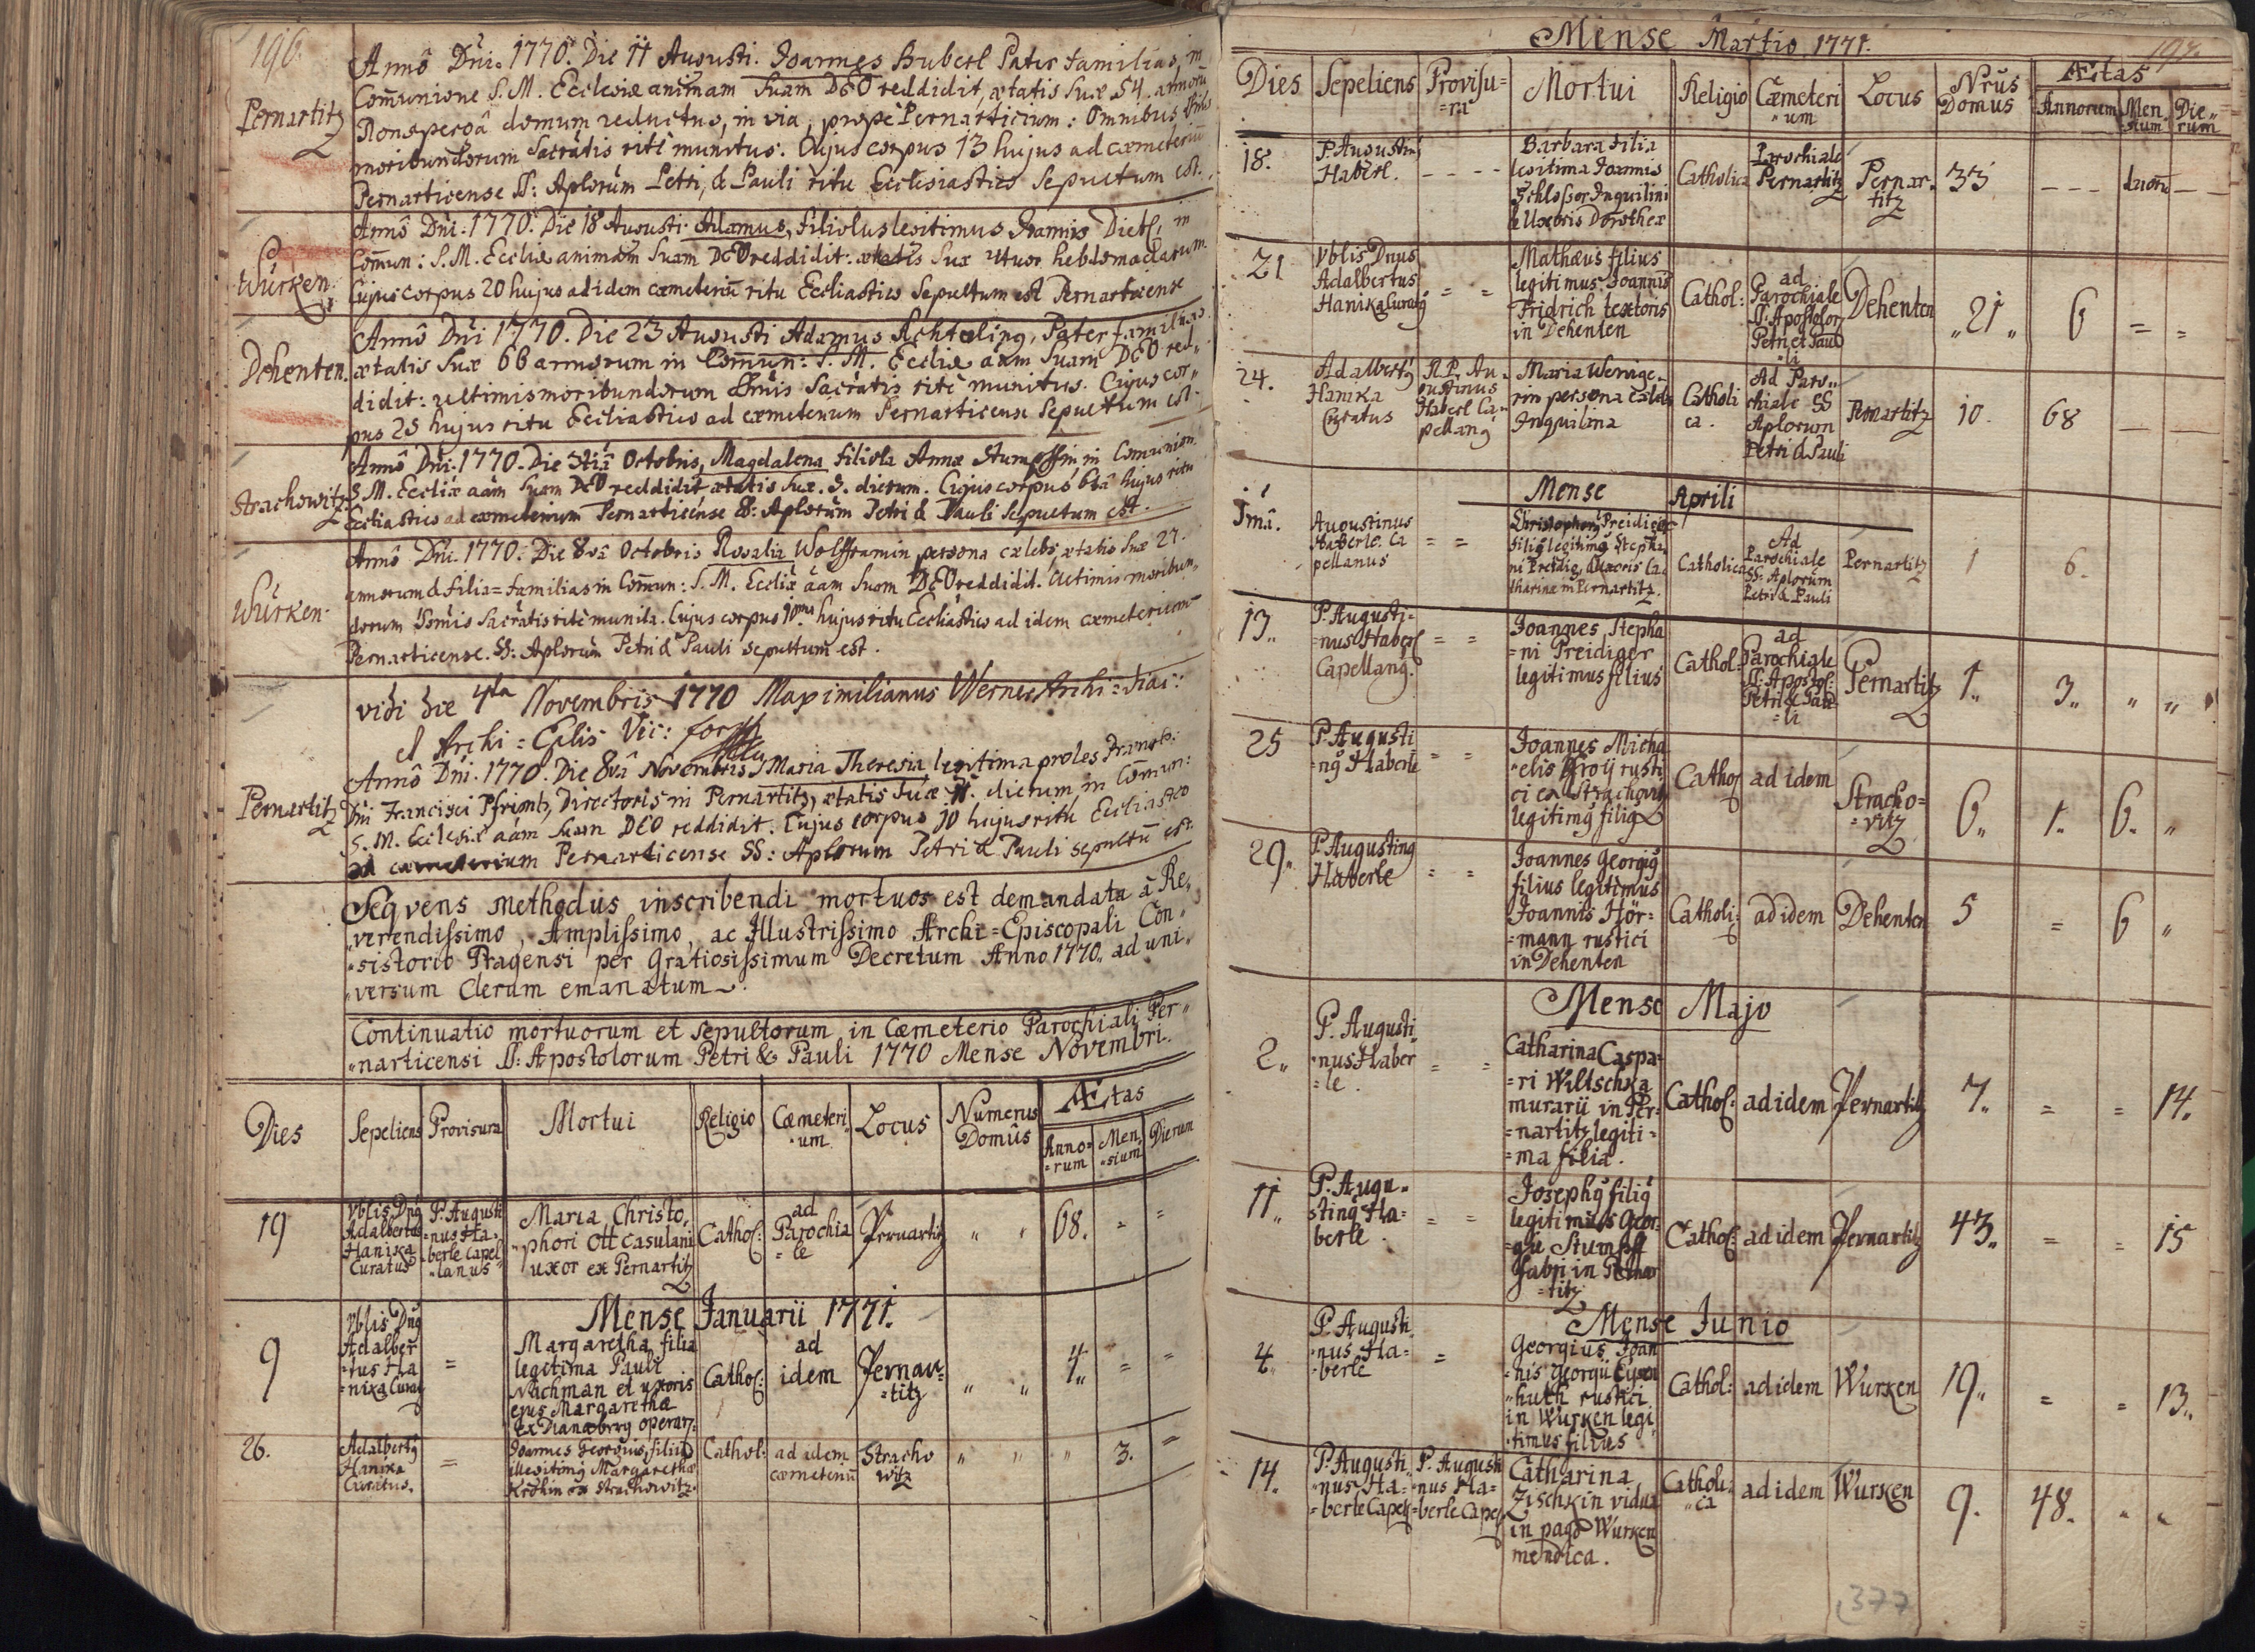 196.
Pernartitz
Annô Dni. 1770. Die 11 Augusti. Joannes Huberl Pater familias, in
Communione S. M. Ecclesiæ animam suam DEO reddidit, ætatis suæ 54 annorũ
Ronspergâ domum reductus, in via, propè Pernarticium: Omnibus
moribundorum Sacrãtis ritè munitus. Cujus corpus 13 hujus ad cæmeteriũ
Pernarticense SS: Aplorum Petri, & Pauli ritu Ecclesiastico Sepultum est.
Würken
Annô Dni. 1770. Die 18 Augusti. Adamus, filiolus legitimus Joannis Dietl, in
Com̃un: S. M. Eccliæ animam suam DEO reddidit: ætatis suæ hebdomadarum.
Cujus corpus 20 hujus ad idem cæmeteriũ ritu Eccliastico Sepultum est Pernarticense
Dehenten.
Annô Dni 1770. Die 23 Augusti Adamus Achtæling, Pater familias
ætatis suæ 66 annorum in Com̃un: S. M. Eccliæ aãm suam DEO red„
didit: ultimis moribundorum Sacrãtis ritè munitus. Cujus cor„
pus 25 hujus ritu Eccliastico ad cæmeterium Pernarticense Sepultum est.
Strachowitz
Annô Dni. 1770. Die 5tiâ Octobris, Magdalena filiola Annæ Stumpffin in Comunion.
S. M. Eccliæ aãm suam DEO reddidit ætatis suæ. 3. dierum. Cujus corpus 6tâ hujus ritu
Eccliastico ad cæmeterium Pernarticense SS: Aplorũm Petri & Pauli Sepultum est.
Würken.
Annô Dni. 1770. Die 8vâ Octobris Rosalia Wolfframin persona cælebs, ætatis suæ 27.
annorum & filia=familias in Com̃un: S. M. Eccliæ aãm suam DEO reddidit. Ultimis moribun„
dorum Sacrãtis ritè munita. Cujus corpus 10ma hujus ritu Eccliastico ad idem cæmeterium
Pernarticense. SS: Aplorũm Petri & Pauli sepultum est.
vidi die 4ta Novembris 1770 Maximilianus Werner Archi=diac:
et Archi=Eplis Vic: for
Pernartitz
Annô Dni. 1770. Die 8vâ Novembris Maria Theresia, legitima proles
Dni Francisci Pfrimb, Directoris in Pernartitz, ætatis suæ dierum in Com̃un:
S. M. Ecclesiæ aãm suam DEO reddidit. Cujus corpus 10 hujus ritu Eccliastico
ad cæmeterium Pernarticense SS: Aplorum Petri & Pauli sepultũ est.
Seqvens Methodus inscribendi mortuos est demandata à Re„
„verendissimo, Amplissimo, ac Illustrissimo Archi=Episcopali Con„
„sistorio Pragensi per Gratiosissimum Decretum Anno 1770. ad uni„
„versum Clerum emanatum.
Continuatio mortuorum et Sepultorum in Cæmeterio Parochiali Per„
„narticensi SS: Apostolorum Petri & Pauli 1770 Mense Novembri.
Dies Sepeliens Provisura Mortui Religio Cæmeteri„um Locus Numerus Domûs Ætas
Anno=rum Men„sium Dierum
19 Vblis Dnus Adalbertus Hanika Curatus P. Augustinus Haberle Capellanus Maria Christo„
phori Ott casulani
uxor ex Pernartitz Cathol: ad Parochia=le Pernartitz „ „ 68. = =
Mense Januarii 1771.
9 Vblis Dnus Adalber=tus Ha=nika Curat = Margaretha filia
legitima Pauli
Nachman et uxoris
ejus Margarethæ
ex Dianæberg operar: Cathol: ad idem Pernar=titz „ „ 4. = =
26. Adalbertus Hanika Curatus. = Joannes Georgius filius
illegitimus Margarethæ
Krohin ex Strachowitz. Cathol: ad idem cæmeteriũ Strachowitz „ „ „ 3. =
Mense Martio 1771.
197.
Dies Sepeliens Provisu=ra Mortui Religio Cæmeteri„um Locus Nrus Domus Ætas
Annorum Men„sium Die„rum
18. P. Augustin9 Haberl. - - - - Barbara filia
legitima Joannis
Schlosser Inquilini
& Uxoris Dorotheæ Catholica Parochiale Pernartitz Pernar„titz 33 - - - duorũ - -
21 Vblis Dnus Adalbertus Hanika Curat9 = = Mathæus filius
legitimus Joannis
Fridrich textoris
in Dehenten Cathol: ad Parochiale SS: Apostolor Petri et Pauli Dehenten „21„ 6 = =
24. Adalbert9 Hanika Curatus R. P. Augustinus Haberl Capellan9 Maria Wenige„
rin persona cælebs
Inquilina Catholica. Ad Parochiale SS Aplorum Petri & Pauli Pernartitz 10. 68 — —
Mense Aprili
1mâ. Augustinus Haberle. Capellanus = = Christophorus Preidiger
fili9 legitim9 Stepha„
ni Preidig, & uxoris Ca„
tharinæ in Pernartitz. Catholica Ad Parochiale SS: Aplorum Petri & Pauli Pernartitz 1 6.
13„ P. Augusti=nus Haberl Capellan9. = = Joannes Stepha
=ni Preidiger
legitimus filius Cathol: ad Parochiale SS: Apostol: Petri & Pau=li Pernartitz 1„ 3„ „ „
25 P. Augusti=n9 Haberle = = Joannes Micha
„elis Kroij rusti
ci ex Strachovitz
legitim9 fili9 Cathol ad idem Stracho=vitz 6„ 1„ 6. „
29„ P. Augustin9 Haberle = = Joannes Georgi9
filius legitimus
Joannis Hör=
=mann rustici
in Dehenten Catholi: ad idem Dehenten 5 = 6 „
Mense Majo
2„ P. Augusti„nus Haber=le. = = Catharina Caspa=
=ri Wiltschka
murarii in Per=
=nartitz legiti=
=ma filia. Cathol: ad idem Pernartitz 7„ = = 14.
11„ P. Augu„stin9 Ha=berle. = = Joseph9 fili9
legitimus Geor=
=gii Stumpff
fabri in Pernar
=titz Cathol: ad idem Pernartitz 43„ = = 15
Mense Junio
4„ P. Augusti„nus Ha=berle = Georgius Joan
=nis Georgii Eysen
„huth rustici
in Wurken legi
„timus filius Cathol: ad idem Wurken 19„ = = 13„
14. P. Augusti„nus Ha=berle Capel P. Augusti„nus Ha=berle Capel Catharina
Zischkin vidua
in pago Wurken
mendica. Catholi„ca ad idem Wurken 9. 48. „ „
377